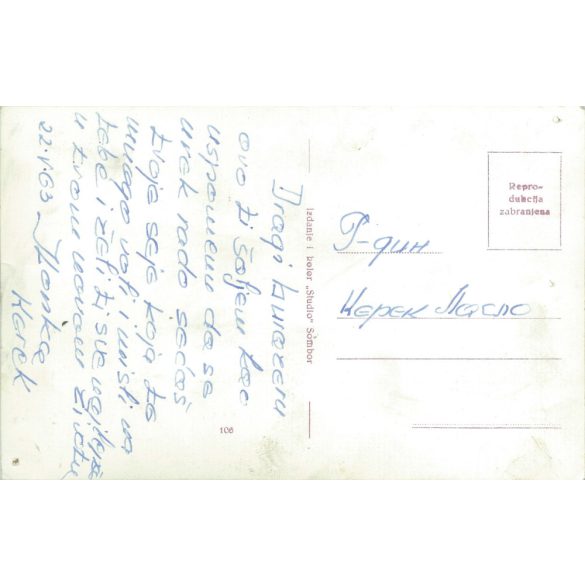 Dragi
ovo ti šaljem kao
uspomenu da se
uvek rado sećaš
tvoje seje koja te
mnogo voli i misli na
tebe i želi ti sve najlepše
u tvom novom životu
22.V.63
Kerek
106
Izdanje i kolor „Studio" Sombor
Repro-
dukcija
zabranjena
Г-дин
Керек Ласло